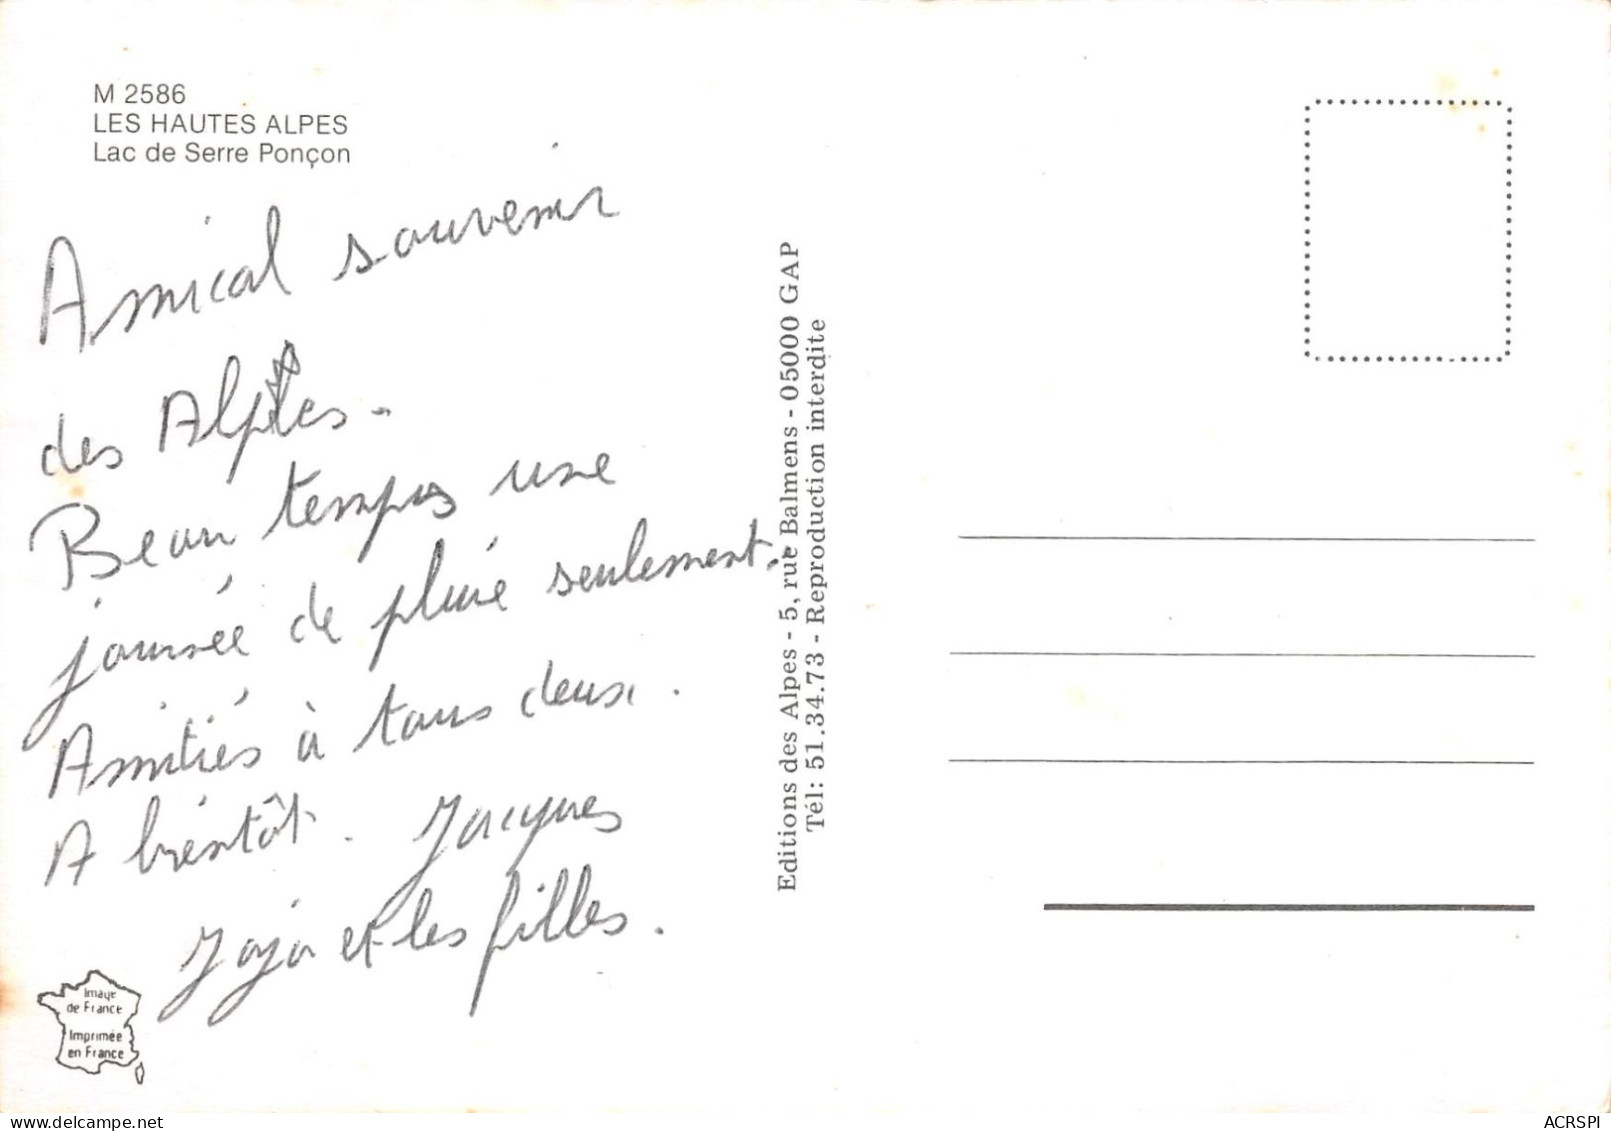 M 2586
LES HAUTES ALPES
Lac de Serre Ponçon
Amical souvenir
des Alpes.
Beau temps une
journée de pluie seulement.
Amitiés à tous deux.
A bientôt. Jacques
Jojo et les filles.
Editions des Alpes - 5, rue Balmens - 05000 GAP
Tél: 51.34.73 - Reproduction interdite
Image
de France
Imprimée
en France
www.delcampe.net
ACRSPI